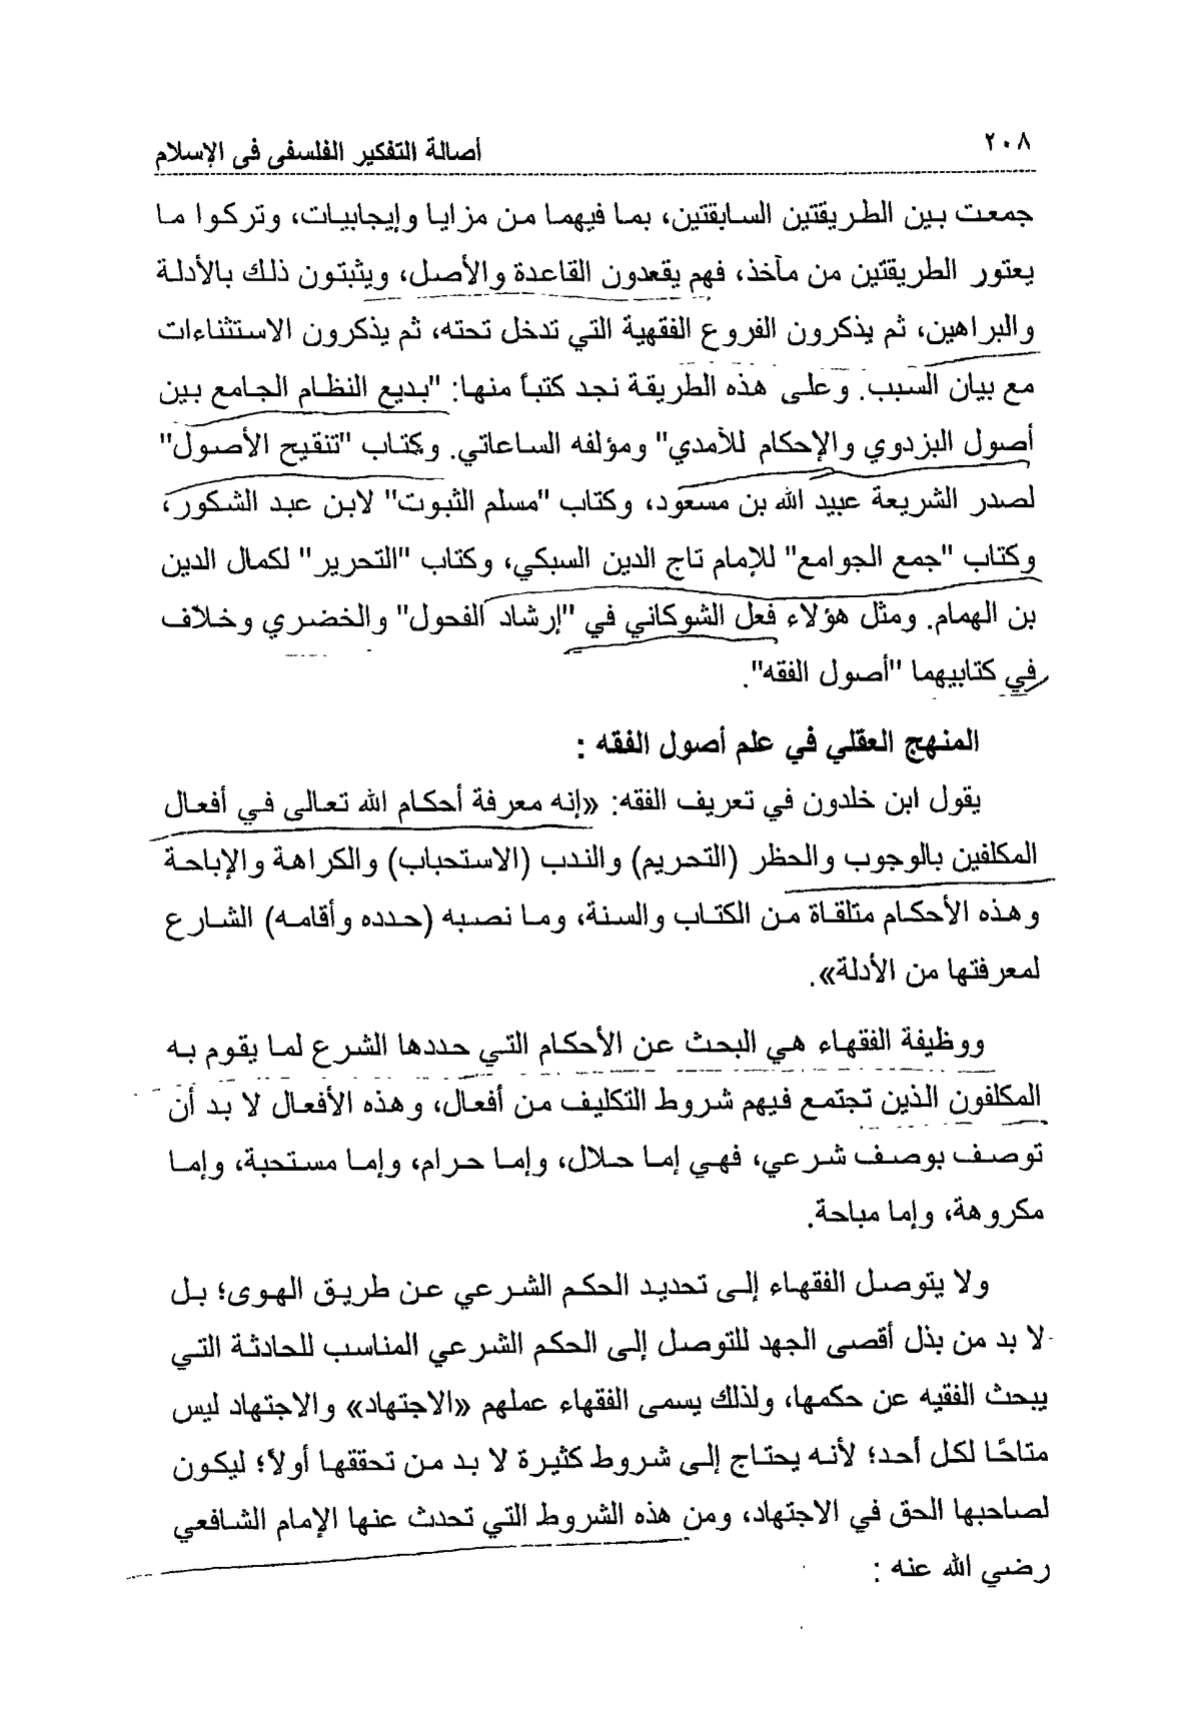 ٢٠٨
أصالة التفكير الفلسفى فى الإسلام
جمعت بين الطريقتين السابقتين، بما فيهما من مزايا وإيجابيات، وتركوا ما
يعتور الطريقتين من مآخذ، فهم يقعدون القاعدة والأصل، ويثبتون ذلك بالأدلة
والبراهين، ثم يذكرون الفروع الفقهية التي تدخل تحته، ثم يذكرون الاستثناءات
مع بيان السبب. وعلى هذه الطريقة نجد كتباً منها: "بديع النظام الجامع بين
أصول البزدوي والإحكام للآمدي" ومؤلفه الساعاتي. وكتاب "تنقيح الأصول"
لصدر الشريعة عبيد الله بن مسعود، وكتاب "مسلم الثبوت" لابن عبد الشكور،
وكتاب "جمع الجوامع" للإمام تاج الدين السبكي، وكتاب "التحرير" لكمال الدين
بن الهمام. ومثل هؤلاء فعل الشوكاني في "إرشاد الفحول" والخضري وخلاف
في كتابيهما "أصول الفقه".
المنهج العقلي في علم أصول الفقه :
يقول ابن خلدون في تعريف الفقه: «إنه معرفة أحكام الله تعالى في أفعال
المكلفين بالوجوب والحظر (التحريم) والندب (الاستحباب) والكراهة والإباحة
وهذه الأحكام متلقاة من الكتاب والسنة، وما نصبه (حدده وأقامه) الشارع
لمعرفتها من الأدلة».
ووظيفة الفقهاء هي البحث عن الأحكام التي حددها الشرع لما يقوم به
المكلفون الذين تجتمع فيهم شروط التكليف من أفعال، وهذه الأفعال لا بد أن
توصف بوصف شرعي، فهي إما حلال، وإما حرام، وإما مستحبة، وإما
مكروهة، وإما مباحة.
ولا يتوصل الفقهاء إلى تحديد الحكم الشرعي عن طريق الهوى؛ بل
لا بد من بذل أقصى الجهد للتوصل إلى الحكم الشرعي المناسب للحادثة التي
يبحث الفقيه عن حكمها، ولذلك يسمى الفقهاء عملهم «الاجتهاد» والاجتهاد ليس
متاحًا لكل أحد؛ لأنه يحتاج إلى شروط كثيرة لا بد من تحققها أولاً؛ ليكون
لصاحبها الحق في الاجتهاد، ومن هذه الشروط التي تحدث عنها الإمام الشافعي
رضي الله عنه :